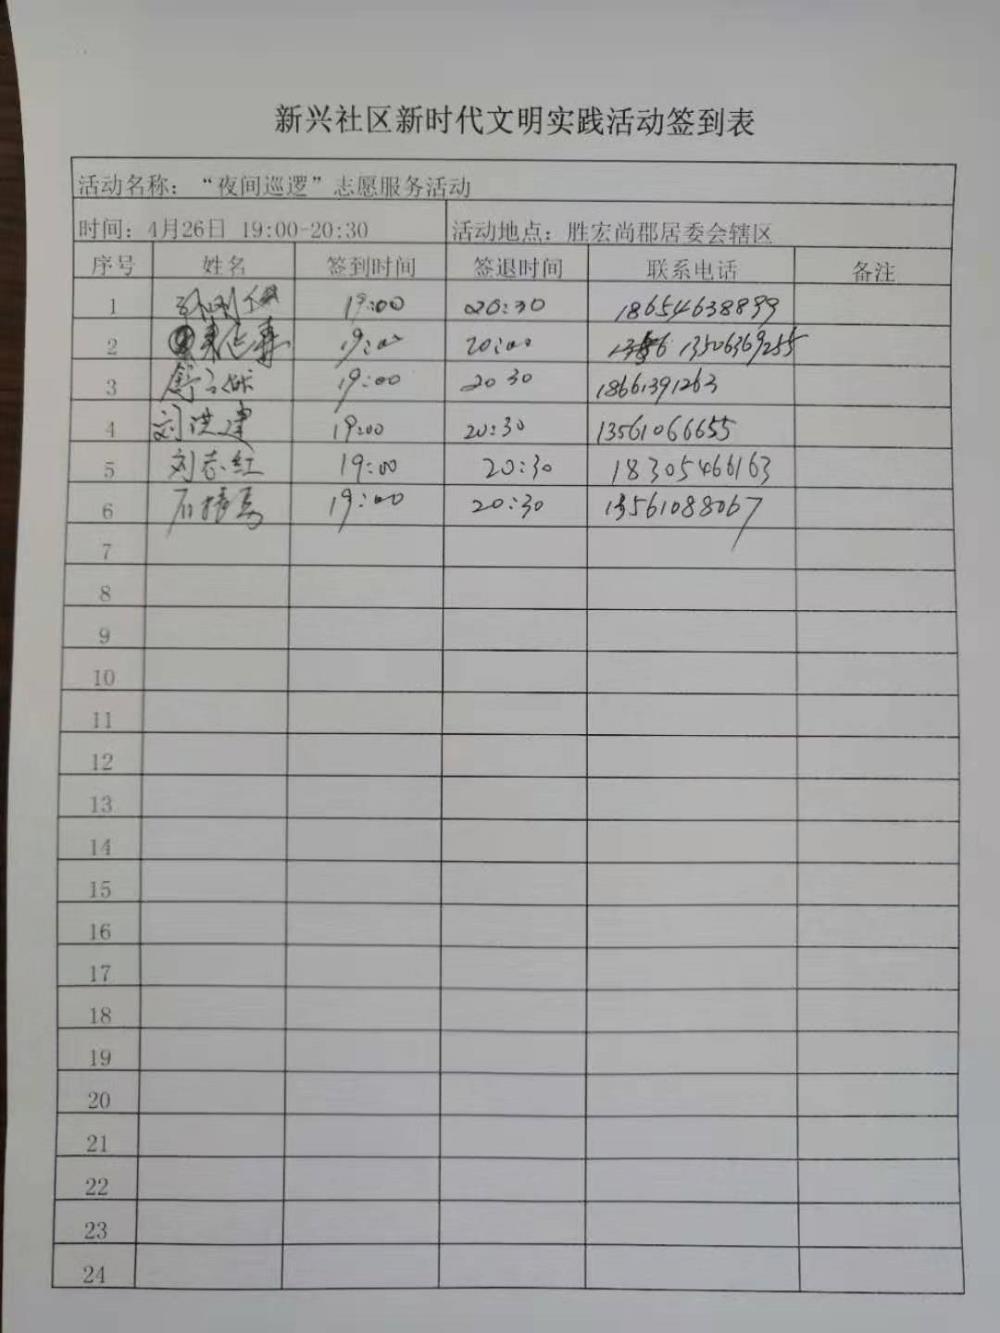 新兴社区新时代文明实践活动签到表
活动名称：“夜间巡逻”志愿服务活动
时间：4月26日 19:00-20:30 活动地点：胜宏尚郡居委会辖区
序号 姓名 签到时间 签退时间 联系电话 备注
1 19:00 20:30 18654638899
2 19:00 20:00 13506369255
3 19:00 20 30 18661391263
4 刘洪建 19:00 20:30 13561066655
5 刘志红 19:00 20:30 18305466163
6 19:00 20:30 13561088067
7
8
9
10
11
12
13
14
15
16
17
18
19
20
21
22
23
24